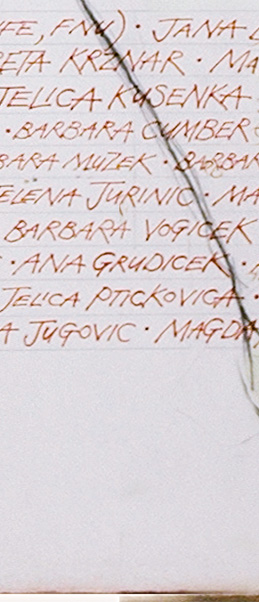 IFE, FNU) · JANA
RETA KRZNAR · MA
JELICA KUSENKA
· BARBARA CUMBER
BARA MUZEK · BARBAR
ELENA JURINIC · MA
BARBARA VOGICEK
· ANA GRUDICEK ·
JELICA PTICKOVICA ·
A JUGOVIC · MAGDA